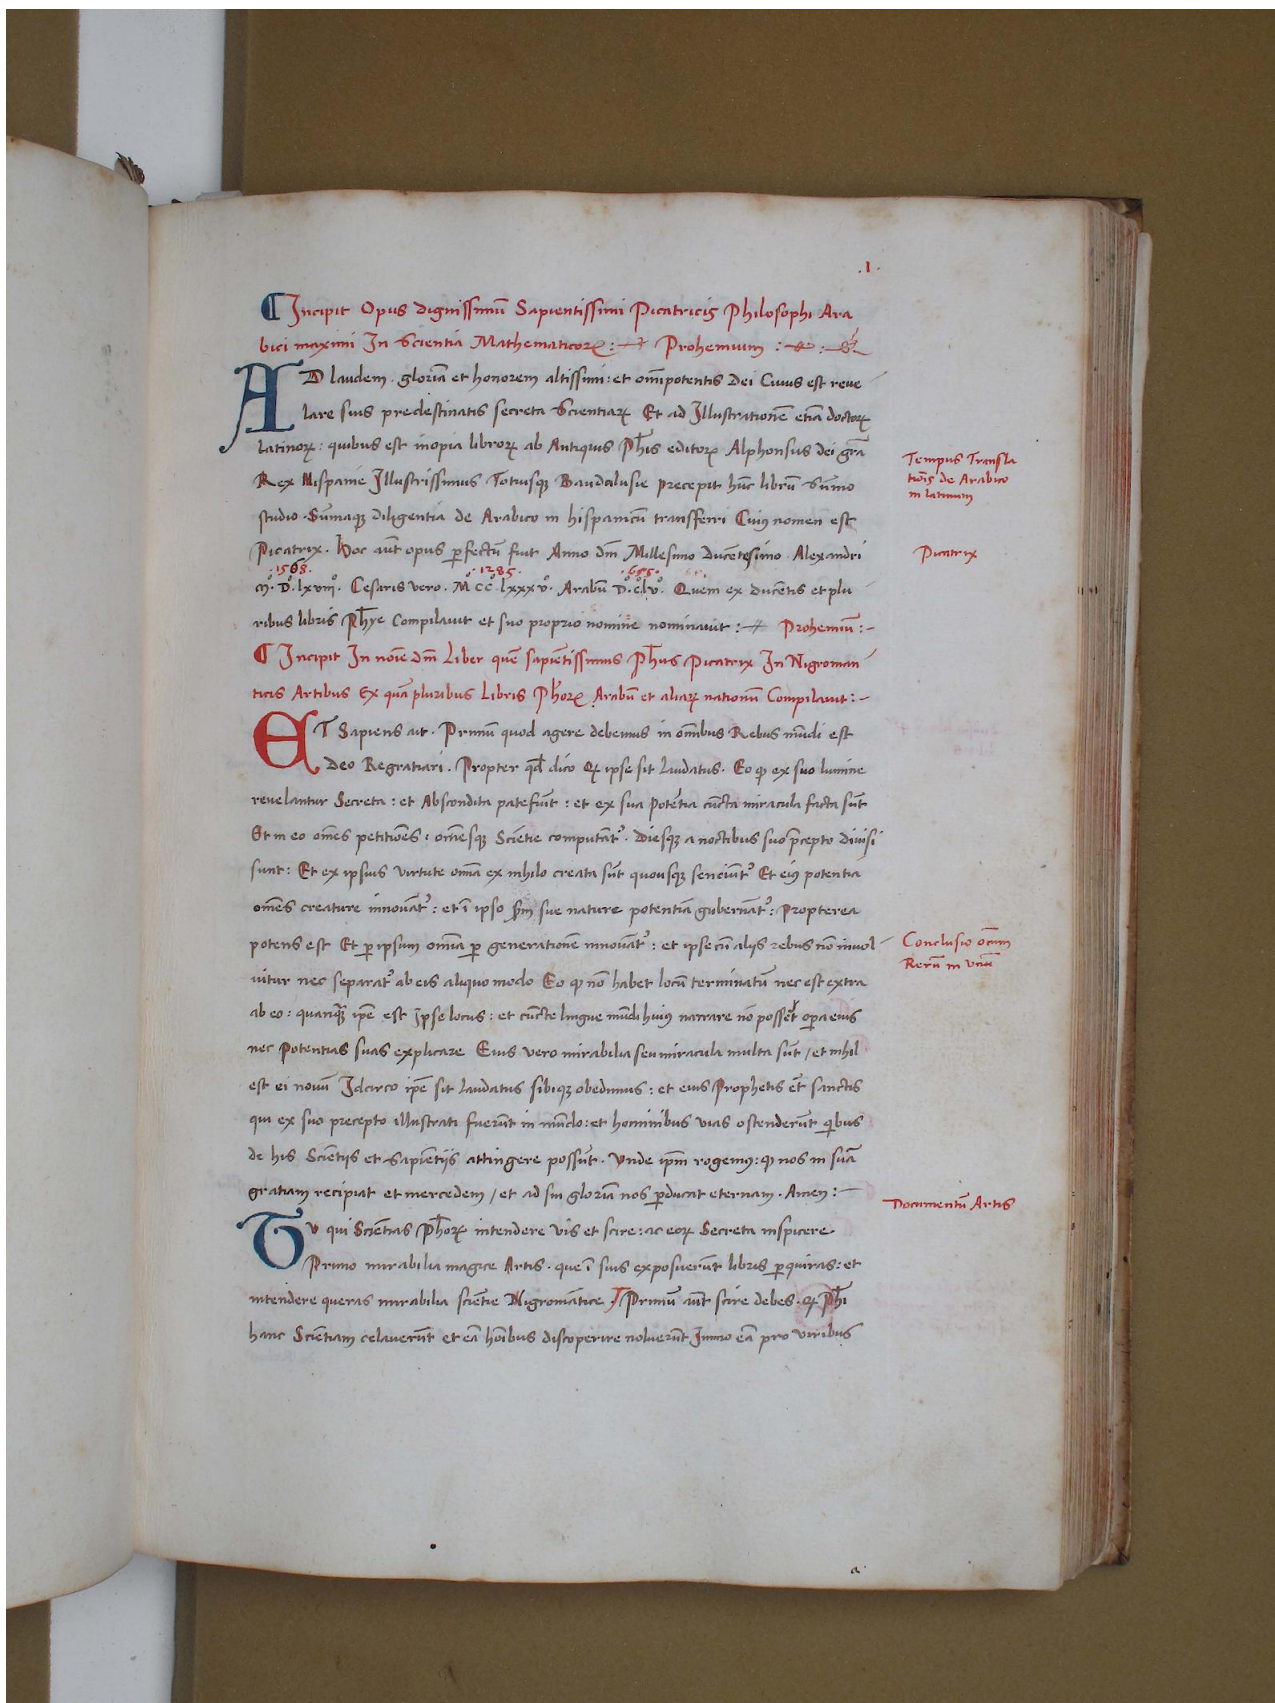 .1.
Incipit Opus dignissimū Sapientissimi Picatricis Philosophi Ara
bici maximi In Scientia Mathematicoꝝ : Prohemium :
AD laudem . gloriā et honorem altissimi : et om̄ipotentis Dei Cuius est reue
lare suis predestinatis secreta Scientiaꝝ Et ad Illustrationē etiā doctoꝝ
latinoꝝ : quibus est inopia libroꝝ ab Antiquis Ph̄is editoꝝ Alphonsus dei gr̄a
Rex Hispanie Illustrissimus Totiusqꝫ Bandalusie precepit hūc librū Sūmo
studio . Sūmaqꝫ diligentia de Arabico in hispanicū transferri Cuiꝰ nomen est
Picatrix . Hoc aūt opus ꝑfectū fuit Anno dn̄i Millesimo Ducētesimo . Alexandri
.1568. .1285. .655.
M°. D°. lxviij°. Cesaris vero . M° C°C° lxxxv°. Arabū D°.c°.lv°. Quem ex ducētis et plu
ribus libris Ph̄ye Compilauit et suo proprio nomine nominauit : Prohemiū :-
Incipit In noīe dn̄i Liber quē sapiētissimus Ph̄us Picatrix In Nigroman
ticis Artibus Ex quā pluribus Libris Ph̄oꝝ Arabū et aliaꝝ nationū Compilauit :-
ET Sapiens ait . Primū quod agere debemus in om̄ibus Rebus mūdi est
Deo Regratiari . Propter qd̄ dico ꝙ ipse sit laudatus . Eo ꝙ ex suo lumine
reuelantur Secreta : et Abscondita patefiūt : et ex sua Potētia cūcta miracula facta sūt
Et in eo om̄es petitiōes : om̄esqꝫ Sciētie computātᵕ . Diesqꝫ a noctibus suo p̄cepto diuisi
sunt : Et ex ipsius virtute om̄ia ex nihilo creata sūt quousqꝫ senciūtᵕ Et eiꝰ potentia
om̄es creature innouātᵕ : et ī ipso sm̄ sue nature potentiā gubernātᵕ : Propterea
potens est Et ꝑ ipsum om̄ia ꝑ generationē innouātᵕ : et ipse cū alijs rebus nō inuol
uitur nec separatᵕ ab eis aliquo modo Eo ꝙ nō habet locū terminatū nec est extra
ab eo : quanqꝫ ip̄e est Ipse locus : et cūcte lingue mūdi huius narrare nō possēt opera eius
nec Potentias suas explicare Eius vero mirabilia seu miracula multa sūt / et nihil
est ei nouū Idcirco ip̄e sit laudatus sibiqꝫ obedimus : et eius Prophetis et sanctis
qui ex suo precepto illustrati fuerūt in mūdo : et hominibus uias ostenderūt qibus
de his Sciētijs et Sapiētijs attingere possūt . Vnde ip̄m rogemꝰ : ꝙ nos in suā
gratiam recipiat et mercedem / et ad sui gloriā nos ꝑducat eternam . Amen :-
TV qui Sciētias Ph̄oꝝ intendere vis et scire : ac eoꝝ Secreta inspicere .
Primo mirabilia magice Artis . que ī suis exposuerūt libris ꝑquiras : et
intendere queras mirabilia sciētie Nigromātice Primū aūt scire debes . ꝙ Ph̄i
hanc Sciētiam celauerūt et eā hoībus discoperire noluerūt Immo eā pro viribus
Tempus Transla
tiōis de Arabico
in latinum
Picatrix
Conclusio om̄ium
Rerū in vnū
Documentū Artis
a